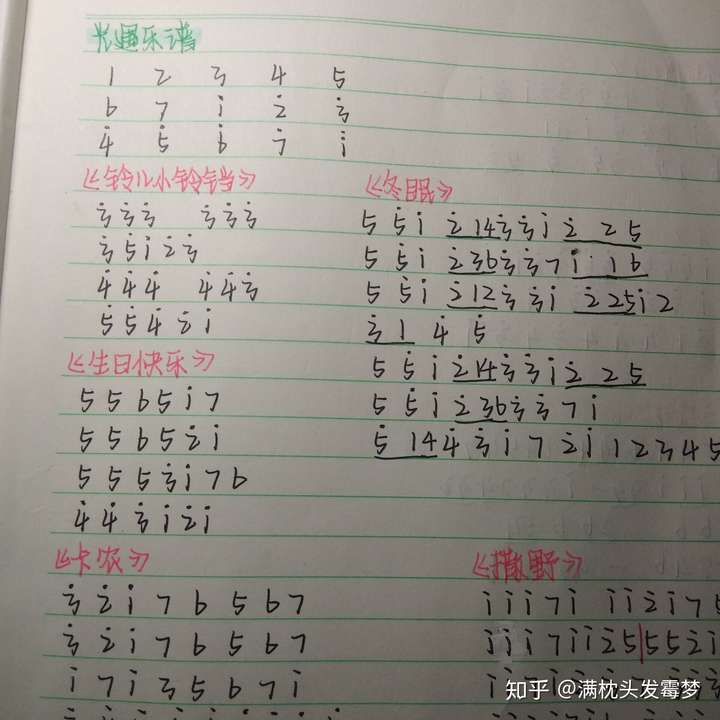 光遇乐谱
1 2 3 4 5
6 7 i 2̇ 3̇
4̇ 5̇ 6̇ 7̇ i
《铃儿小铃铛》
3̇ 3̇ 3̇ 3̇ 3̇ 3̇
3̇ 5̇ i 2̇ 3̇
4̇ 4̇ 4̇ 4̇ 4̇ 3̇
5̇ 5̇ 4̇ 2̇ i
《生日快乐》
5 5 6 5 i 7
5 5 6 5 2̇ i
5 5 5̇ 3̇ i 7 6
4̇ 4̇ 3̇ i 2̇ i
《冬眠》
5 5̇ i 2̇ 1 4 3̇ 3̇ i 2̇ 2 5
5 5̇ i 2̇ 3 6 3̇ 3̇ 7 i 1 6
5 5̇ i 2̇ 1 2 3̇ 3̇ i 2̇ 2 5 i 2
3̇ 1 4 5
5 5̇ i 2̇ 1 4 3̇ 3̇ i 2̇ 2 5
5 5̇ i 2̇ 3 6 3̇ 3̇ 7 i
5̇ 1 4 4̇ 3̇ i 7 2̇ i 1 2 3 4 5
《卡农》
3̇ 2̇ i 7 6 5 6 7
3̇ 2̇ i 7 6 5 6 7
i 7 i 3 5 6 7 i
《撒野》
i i i 7 i i i 2̇ i 7 5
i i i 7 i i 2̇ 5 5 5 2̇ i
知乎 @满枕头发霉梦